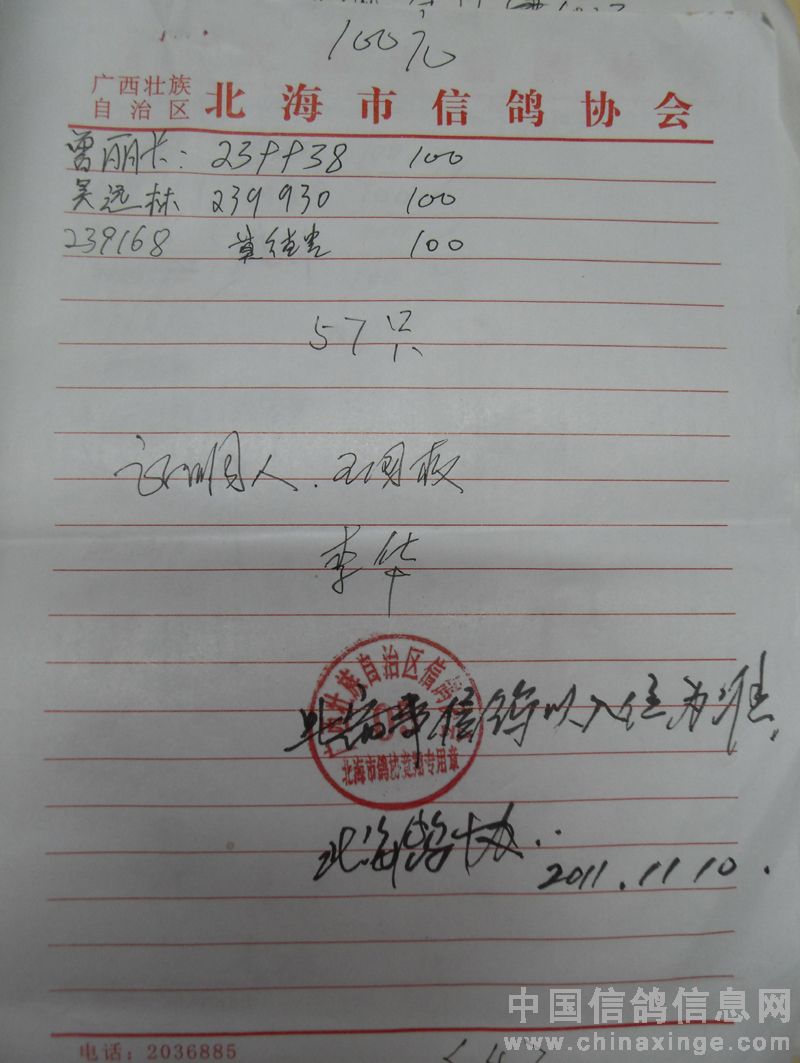 100元
广西壮族
自治区 北海市信鸽协会
曾丽长: 239938 100
吴远林 239930 100
239168 黄 100
57只
证明人.王国权
李华
广西壮族自治区信鸽
北海市鸽协竞翔专用章
信鸽以入住为准.
北海鸽协..
2011.11 10.
中国信鸽信息网
电话:2036885
www.chinaxinge.com